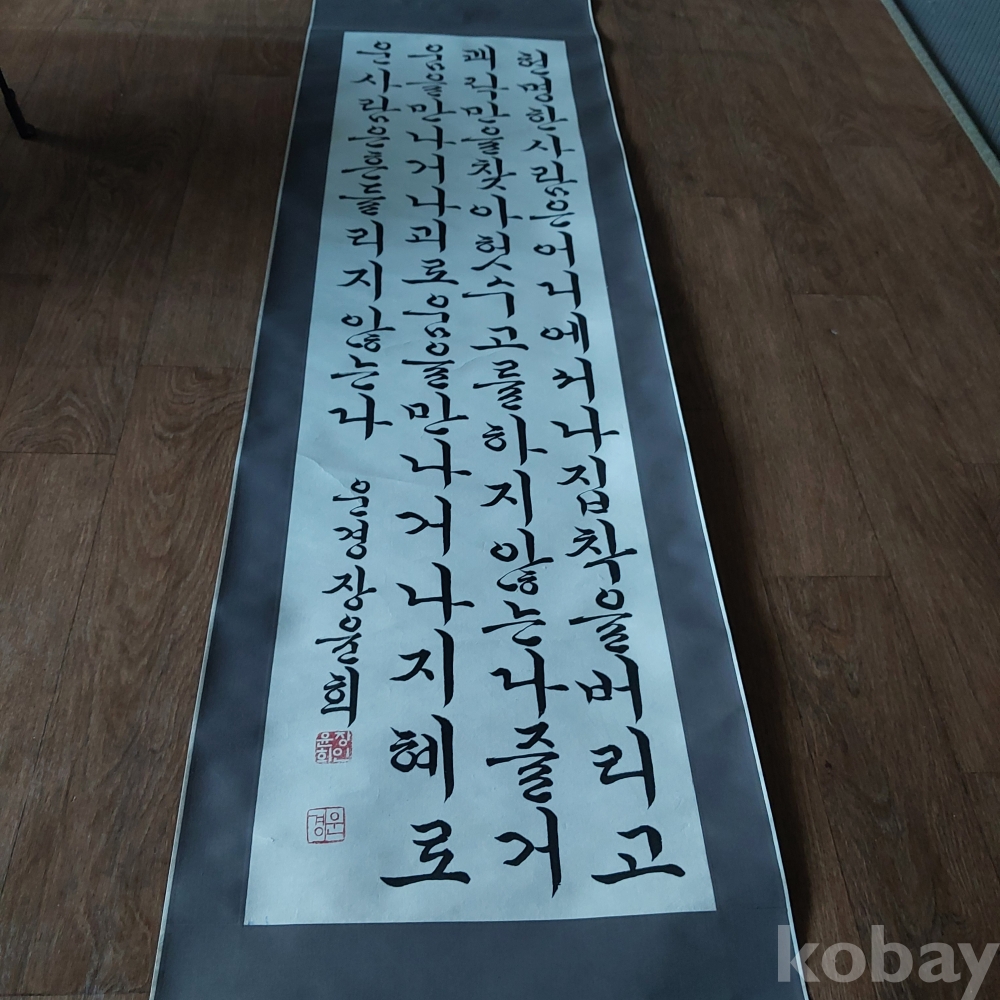 현명한사람은어디에서나집착을버리고
쾌락만을찾아헛수고를하지않는다즐거
움을만나거나괴로움을만나거나지혜로
운사람은흔들리지않는다 운경장윤희
장인윤희
운경
kobay